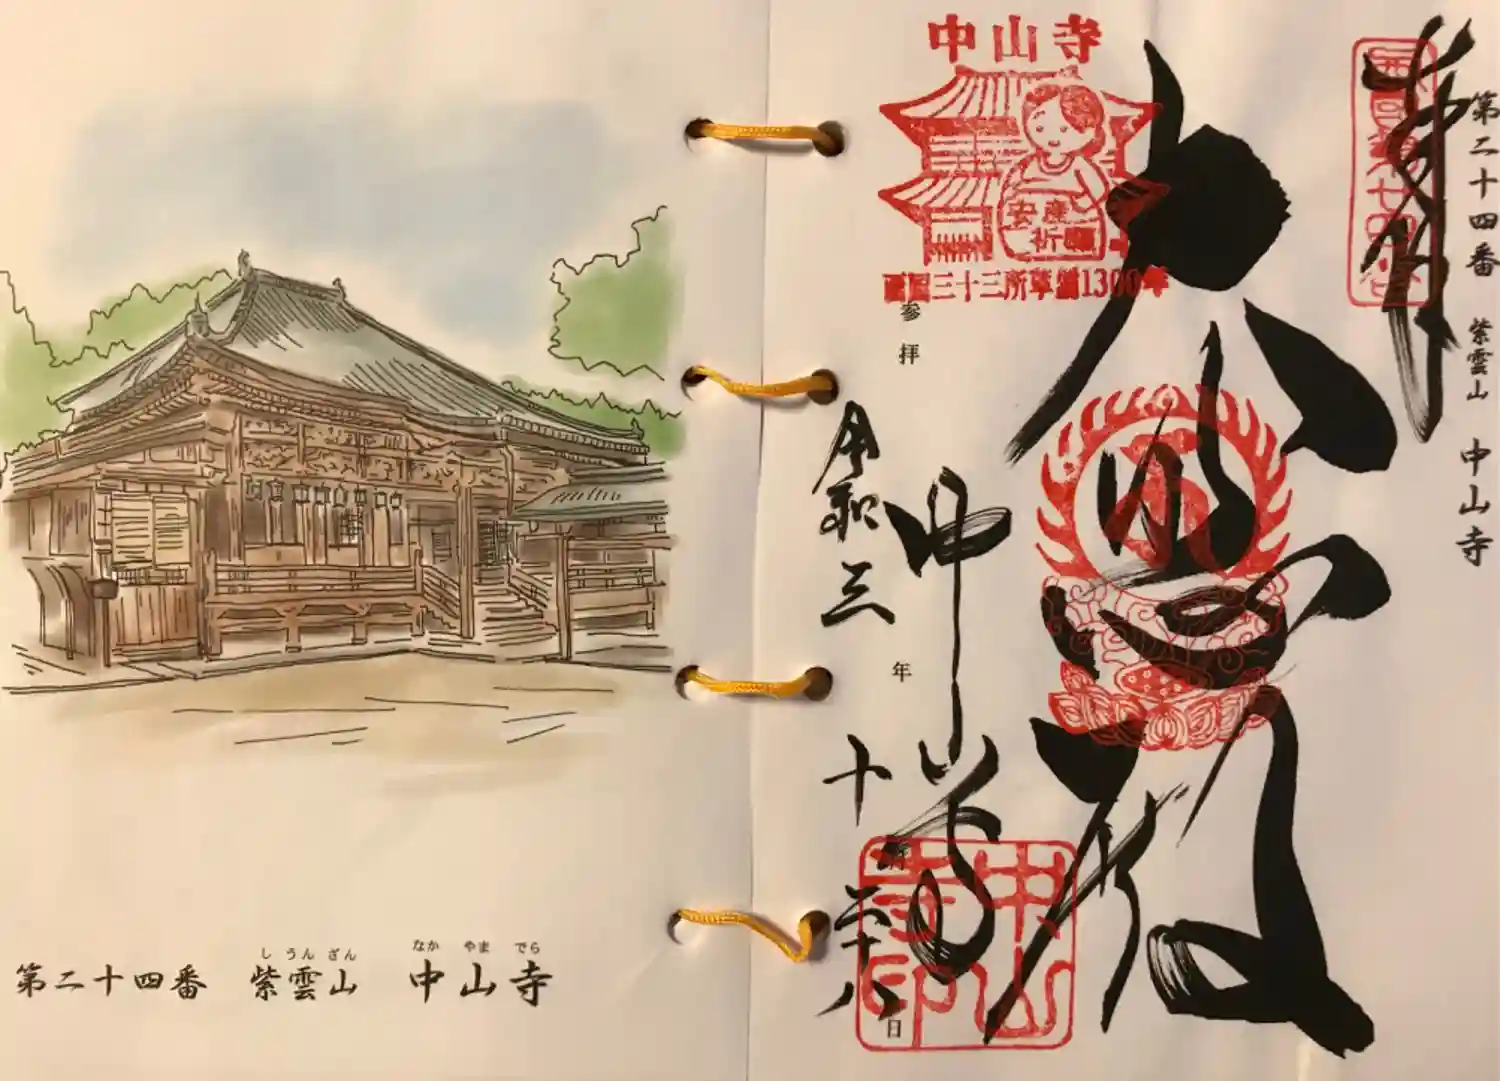 第二十四番 紫雲山 中山寺
しうんざん なかやまでら
第二十四番 紫雲山 中山寺
奉拝
西国第廿四番
大悲殿
中山寺
安産
祈願
西国三十三所草創1300年
参拝
中山寺
令和三年十月二十八日
中山寺印